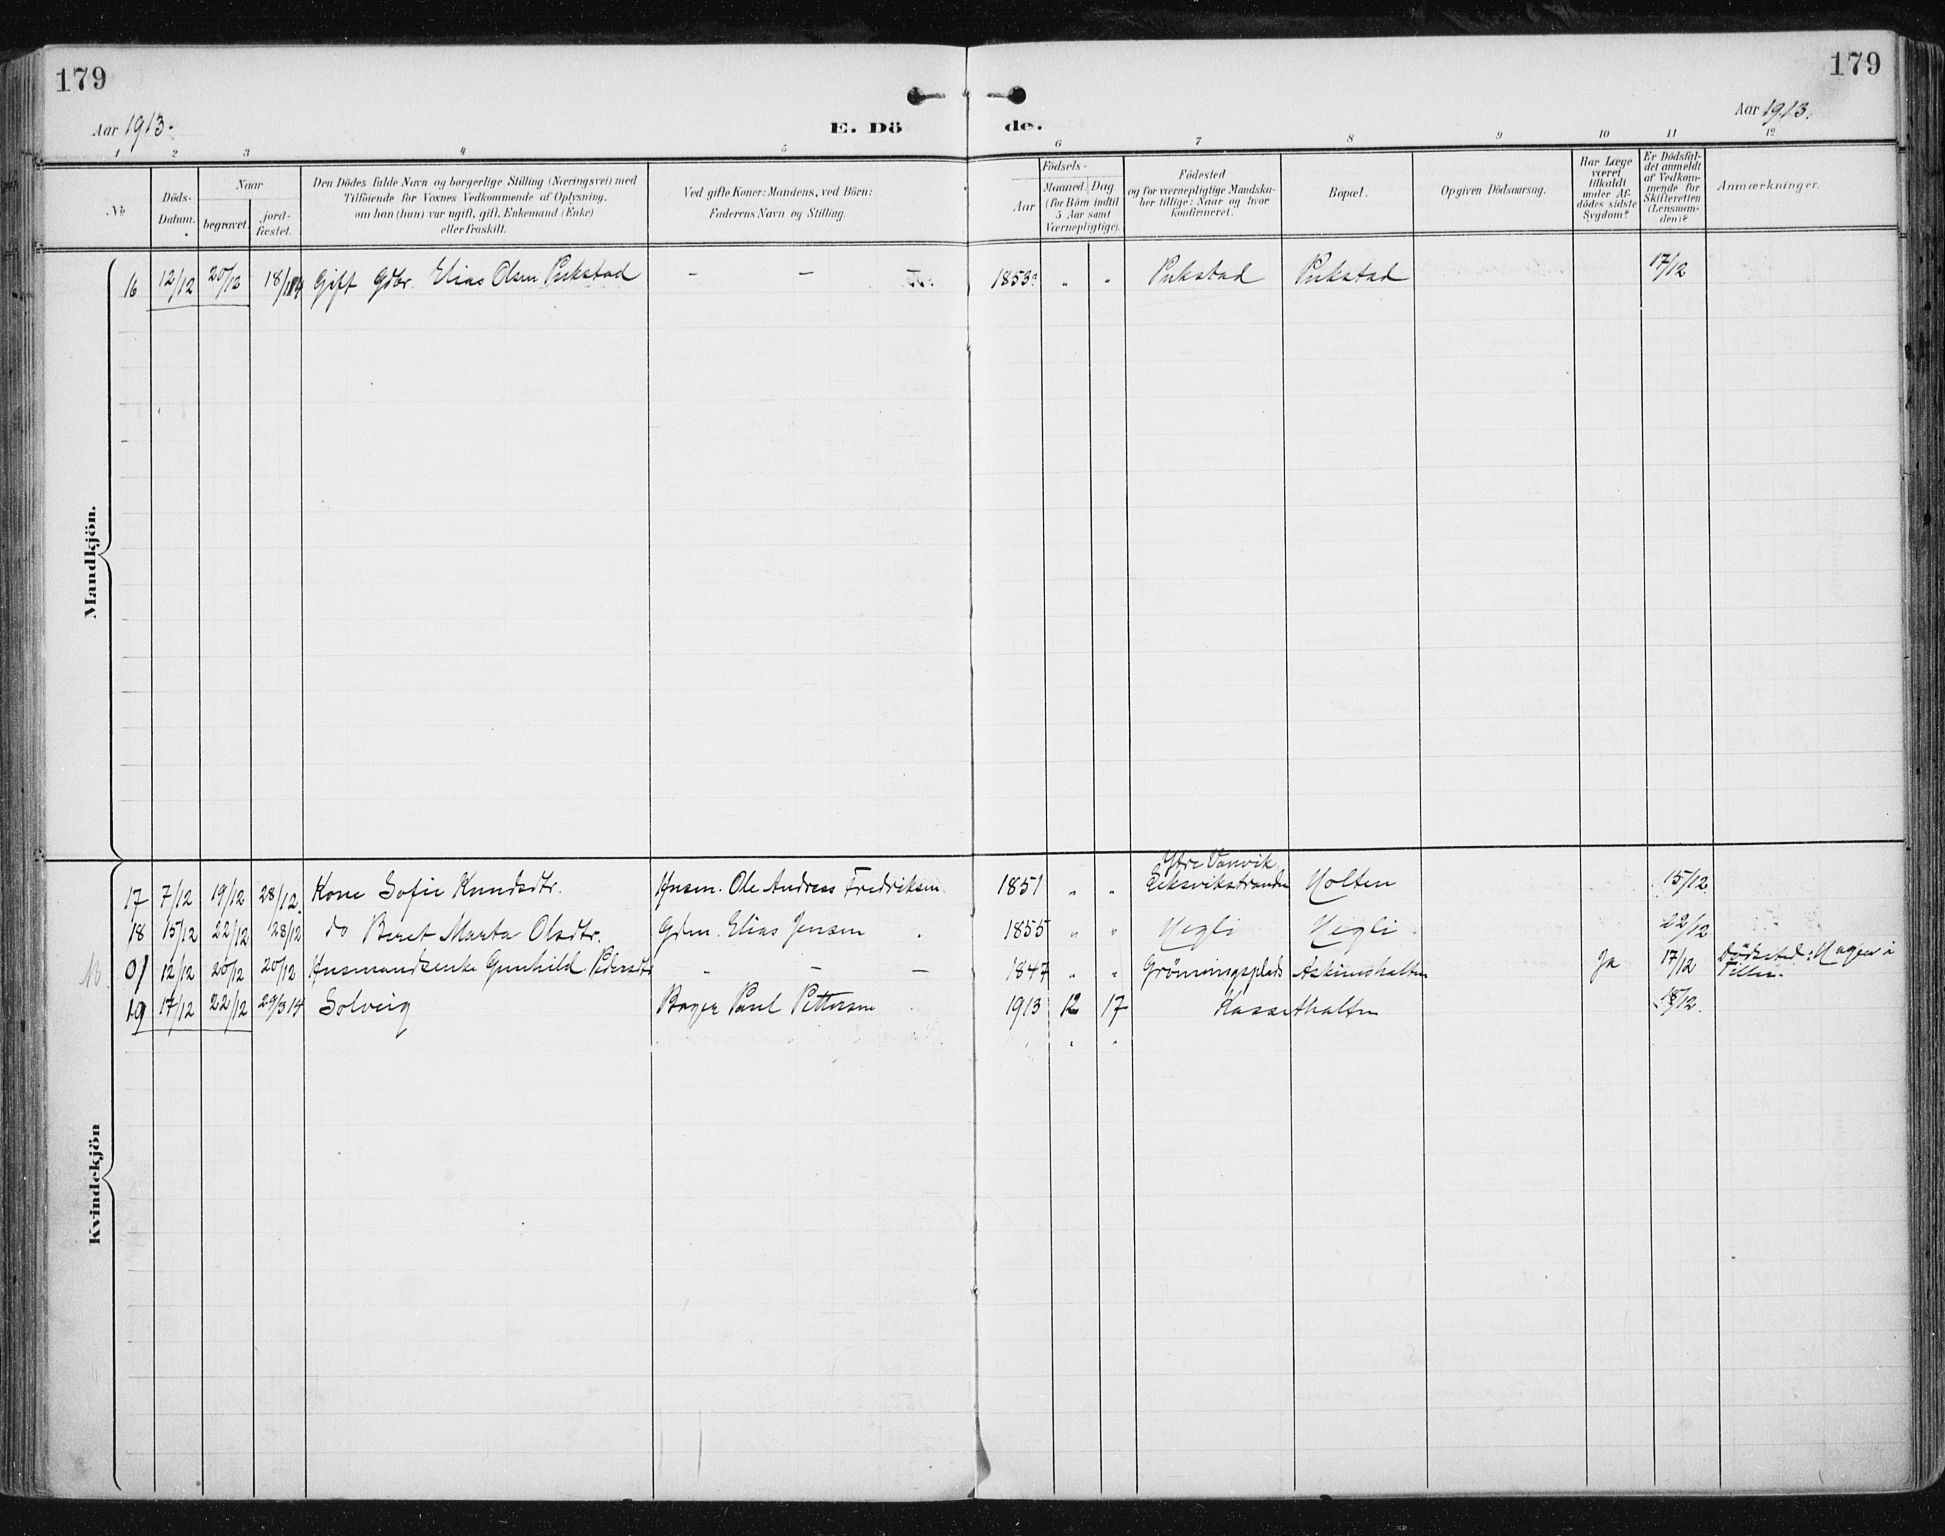 179
179
Aar 1913.
E. Dö
de.
Aar 1913.
1 2 3 4 5 6 7 8 9 10 11 12
№
Döds-
Datum.
Naar
begravet.
jord-
fæstet.
Den Dödes fulde Navn og borgerlige Stilling (Næringsvei) med
Tilföiende for Voxnes Vedkommende af Oplysning,
om han (hun) var ugift, gift, Enkemand (Enke)
eller fraskilt.
Ved gifte Koner: Mandens, ved Börn:
Faderens Navn og Stilling.
Födsels-
Aar
Maaned. Dag.
(for Börn indtil
5 Aar samt
Værnepligtige).
Födested
og for værnepligtige Mandska-
ber tillige: Naar og hvor
konfirmeret.
Bopæl.
Opgiven Dödsaarsag.
Har Læge
været
tilkaldt
under Af-
dödes sidste
Sygdom?
Er Dödsfal-
det anmeldt
af Vedkom-
mende for
Skifteretten
(Lensman-
den)?
Anmærkninger.
Mandkjön.
16 12/12 20/12 18/1 14 Gift Gdbr. Elias Olsen Pukstad - - 1853 " " Pukstad Pukstad 17/12
Kvindekjön
Ytre Vanvik
17 7/12 19/12 28/12. Kone Sofie Knudsdtr. Husm. Ole Andreas Fredriksen 1851 " " Leksvikstranden Holten 15/12
18 15/12 22/12 28/12 do Beret Marta Olsdtr. Gdm. Elias Jensen 1855 " " Hegli Hegli 22/12
01 12/12 20/12 20/12 Husmandsenke Gunhild Pedersdtr - - - 1847 " " Grönningsplads Askimshalten Ja 17/12 Dödssted: Hagen i
Tiller.
19 17/12 22/12 29/3 14 Solveig Bager Paul Pettersen 1913 12 17 Kassethalten 18/12.